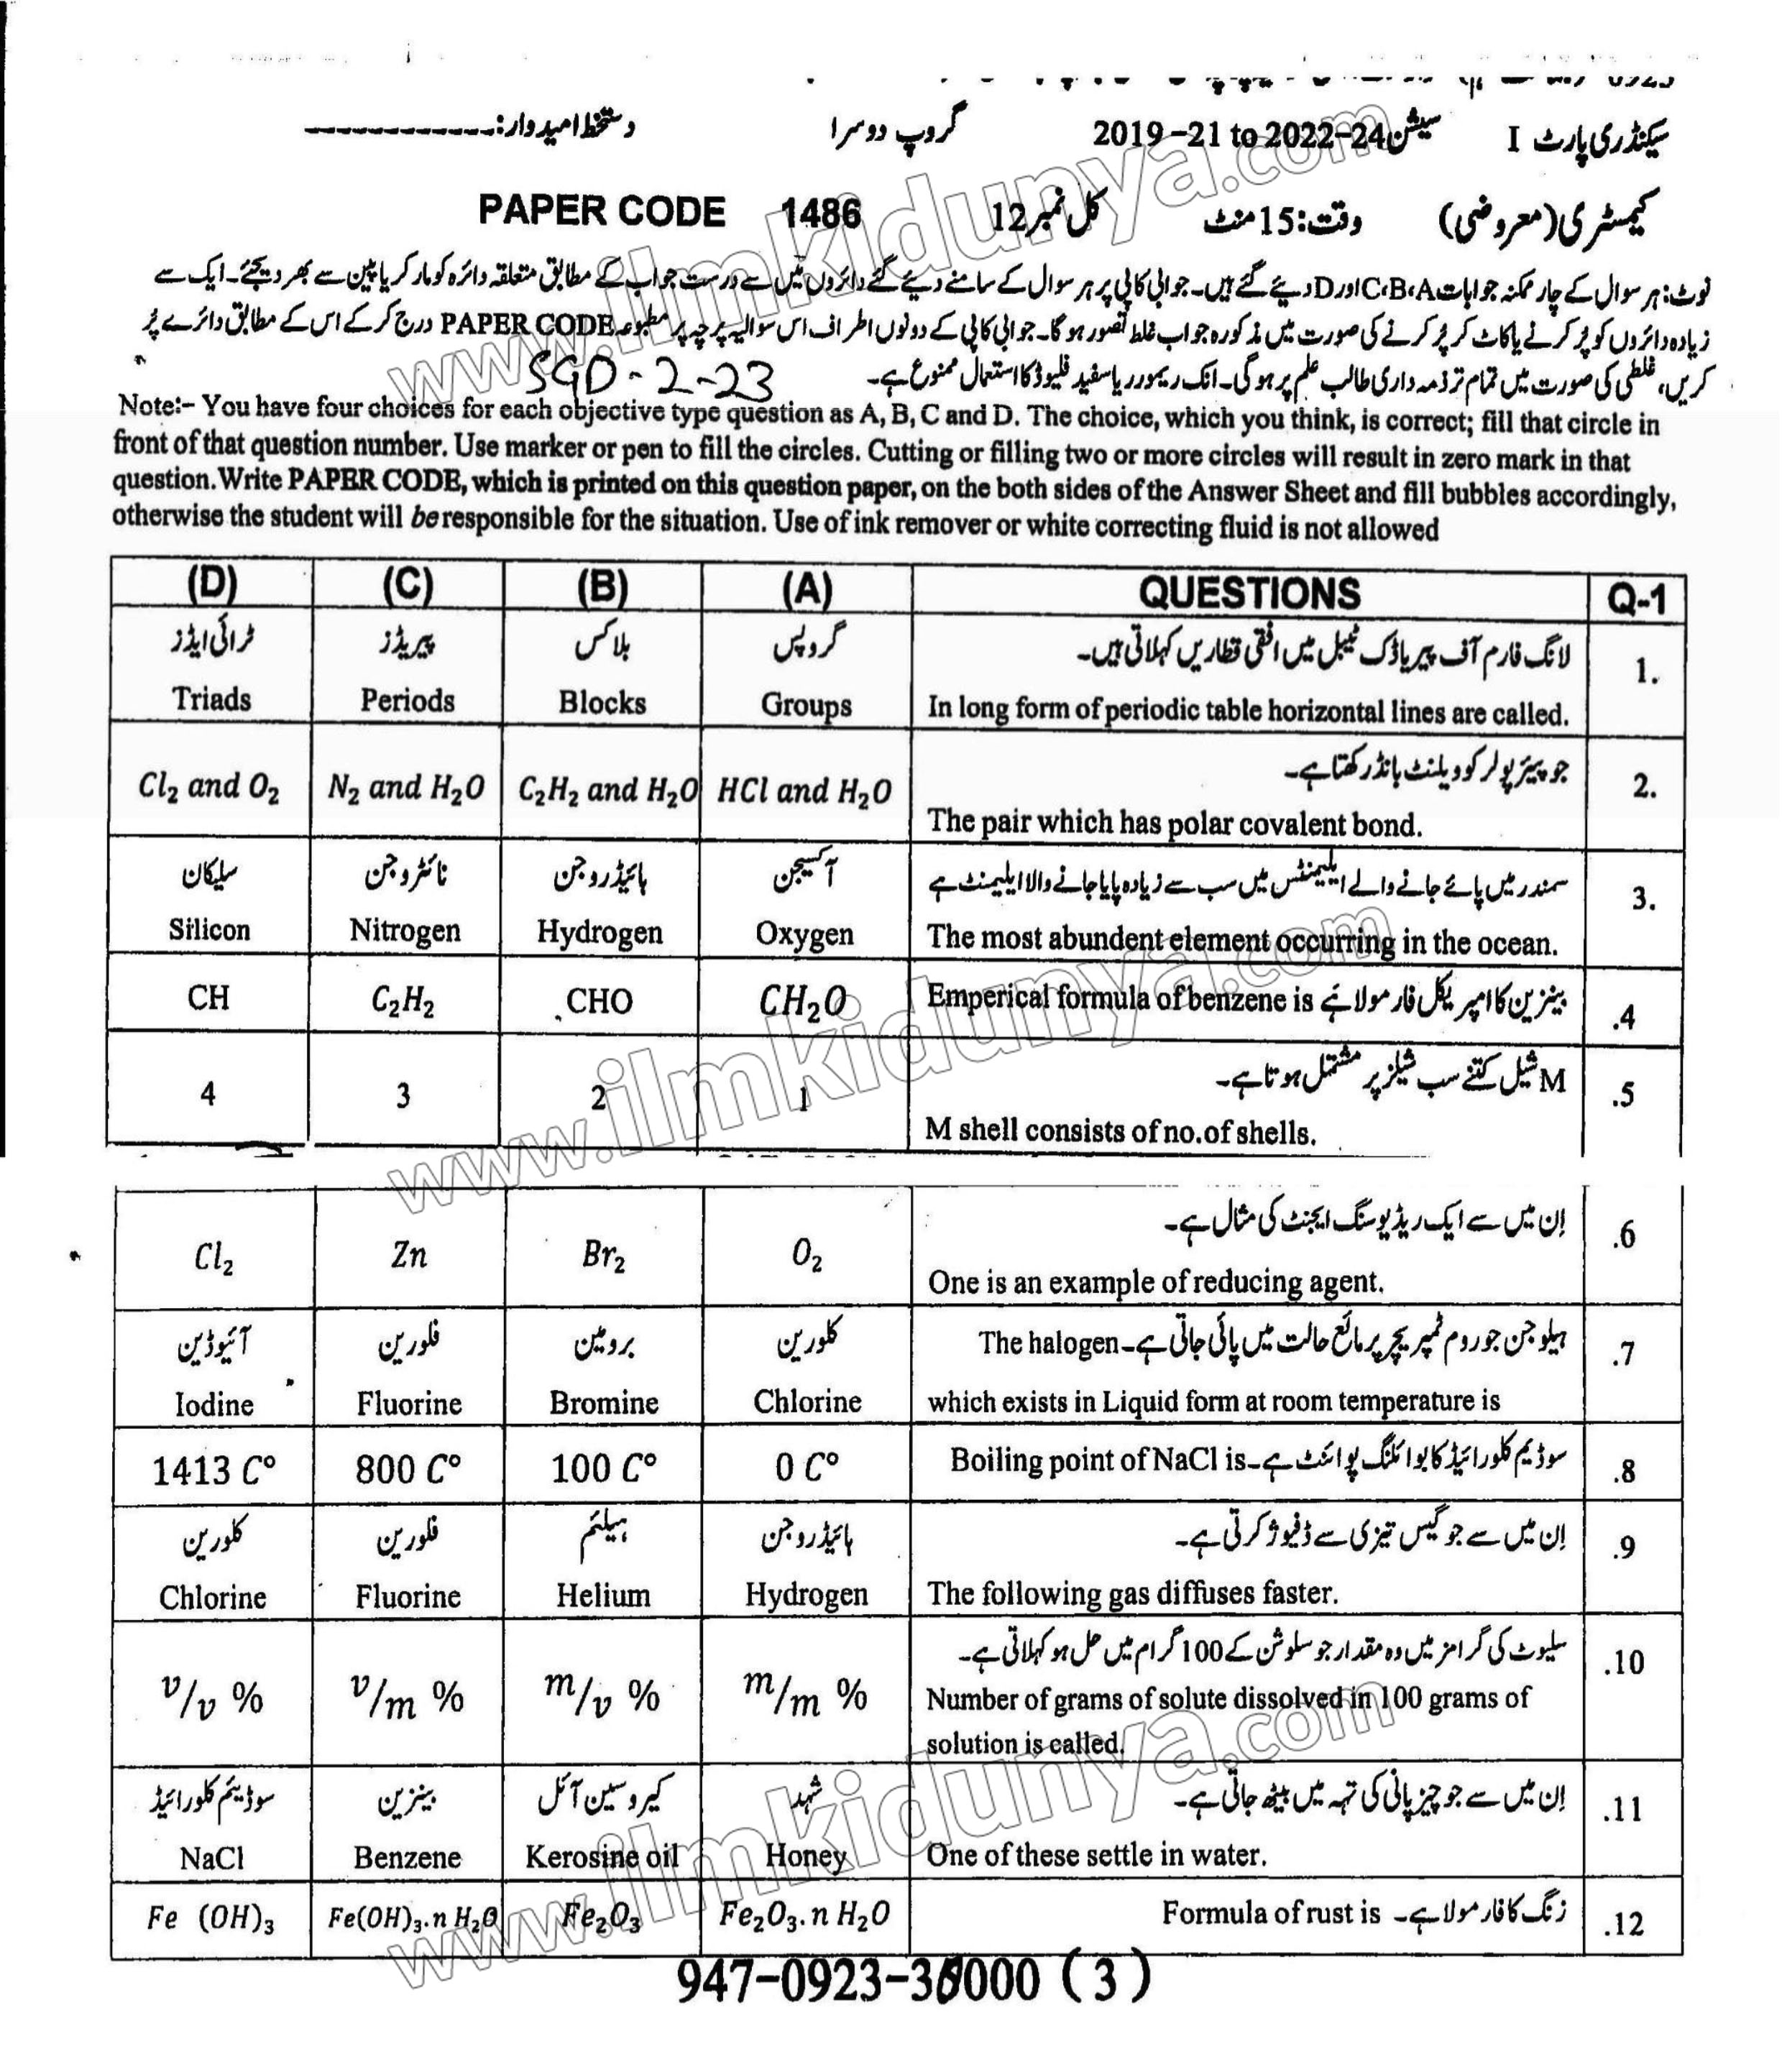 سیکنڈری پارٹ I سیشن 2019-21 to 2022-24 گروپ دوسرا دستخط امیدوار:-------------
کیمسٹری (معروضی) وقت: 15 منٹ کل نمبر 12 PAPER CODE 1486
نوٹ: ہر سوال کے چار ممکنہ جوابات C،B،A اور D دیئے گئے ہیں۔ جوابی کاپی پر ہر سوال کے سامنے دیئے گئے دائروں میں سے درست جواب کے مطابق متعلقہ دائرہ کو مارکر یا پین سے بھر دیجئے۔ ایک سے
زیادہ دائروں کو پُر کرنے یا کاٹ کر پُر کرنے کی صورت میں مذکورہ جواب غلط تصور ہوگا۔ جوابی کاپی کے دونوں اطراف اس سوالیہ پرچہ پر مطبوعہ PAPER CODE درج کر کے اس کے مطابق دائرے پُر
کریں، غلطی کی صورت میں تمام تر ذمہ داری طالب علم پر ہوگی۔ انک ریموور یا سفید فلیوڈ کا استعمال ممنوع ہے۔ SGD-2-23
Note:- You have four choices for each objective type question as A, B, C and D. The choice, which you think, is correct; fill that circle in
front of that question number. Use marker or pen to fill the circles. Cutting or filling two or more circles will result in zero mark in that
question. Write PAPER CODE, which is printed on this question paper, on the both sides of the Answer Sheet and fill bubbles accordingly,
otherwise the student will be responsible for the situation. Use of ink remover or white correcting fluid is not allowed
(D) (C) (B) (A) QUESTIONS Q-1
ٹرائی ایڈز پیریڈز بلاکس گروپس لانگ فارم آف پیریاڈک ٹیبل میں افقی قطاریں کہلاتی ہیں۔ 1.
Triads Periods Blocks Groups In long form of periodic table horizontal lines are called.
جو پیئر پولر کوویلنٹ بانڈ رکھتا ہے۔ 2.
Cl₂ and O₂ N₂ and H₂O C₂H₂ and H₂O HCl and H₂O
The pair which has polar covalent bond.
سلیکان نائٹروجن ہائیڈروجن آکسیجن سمندر میں پائے جانے والے ایلیمنٹس میں سب سے زیادہ پایا جانے والا ایلیمنٹ ہے 3.
Silicon Nitrogen Hydrogen Oxygen The most abundent element occurring in the ocean.
CH C₂H₂ CHO CH₂O Emperical formula of benzene is بینزین کا امپیریکل فارمولا ہے .4
M شیل کتنے سب شیلز پر مشتمل ہوتا ہے۔ .5
4 3 2 1
M shell consists of no.of shells.
اِن میں سے ایک ریڈیوسنگ ایجنٹ کی مثال ہے۔ .6
Cl₂ Zn Br₂ O₂
One is an example of reducing agent.
آئیوڈین فلورین برومین کلورین The halogen ہیلوجن جو روم ٹمپریچر پر مائع حالت میں پائی جاتی ہے۔ .7
Iodine Fluorine Bromine Chlorine which exists in Liquid form at room temperature is
1413 C° 800 C° 100 C° 0 C° Boiling point of NaCl is سوڈیم کلورائیڈ کا بوائلنگ پوائنٹ ہے۔ .8
کلورین فلورین ہیلیئم ہائیڈروجن اِن میں سے جو گیس تیزی سے ڈفیوژ کرتی ہے۔ .9
Chlorine Fluorine Helium Hydrogen The following gas diffuses faster.
سلیوٹ کی گرامز میں وہ مقدار جو سلوشن کے 100 گرام میں حل ہو کہلاتی ہے۔ .10
v/v % v/m % m/v % m/m % Number of grams of solute dissolved in 100 grams of
solution is called.
سوڈیئم کلورائیڈ بینزین کیروسین آئل شہد اِن میں سے جو چیز پانی کی تہہ میں بیٹھ جاتی ہے۔ .11
NaCl Benzene Kerosine oil Honey One of these settle in water.
Fe (OH)₃ Fe(OH)₃.n H₂O Fe₂O₃ Fe₂O₃.n H₂O Formula of rust is زنگ کا فارمولا ہے۔ .12
947-0923-36000 (3)
www.ilmkidunya.com
www.ilmkidunya.com
www.ilmkidunya.com